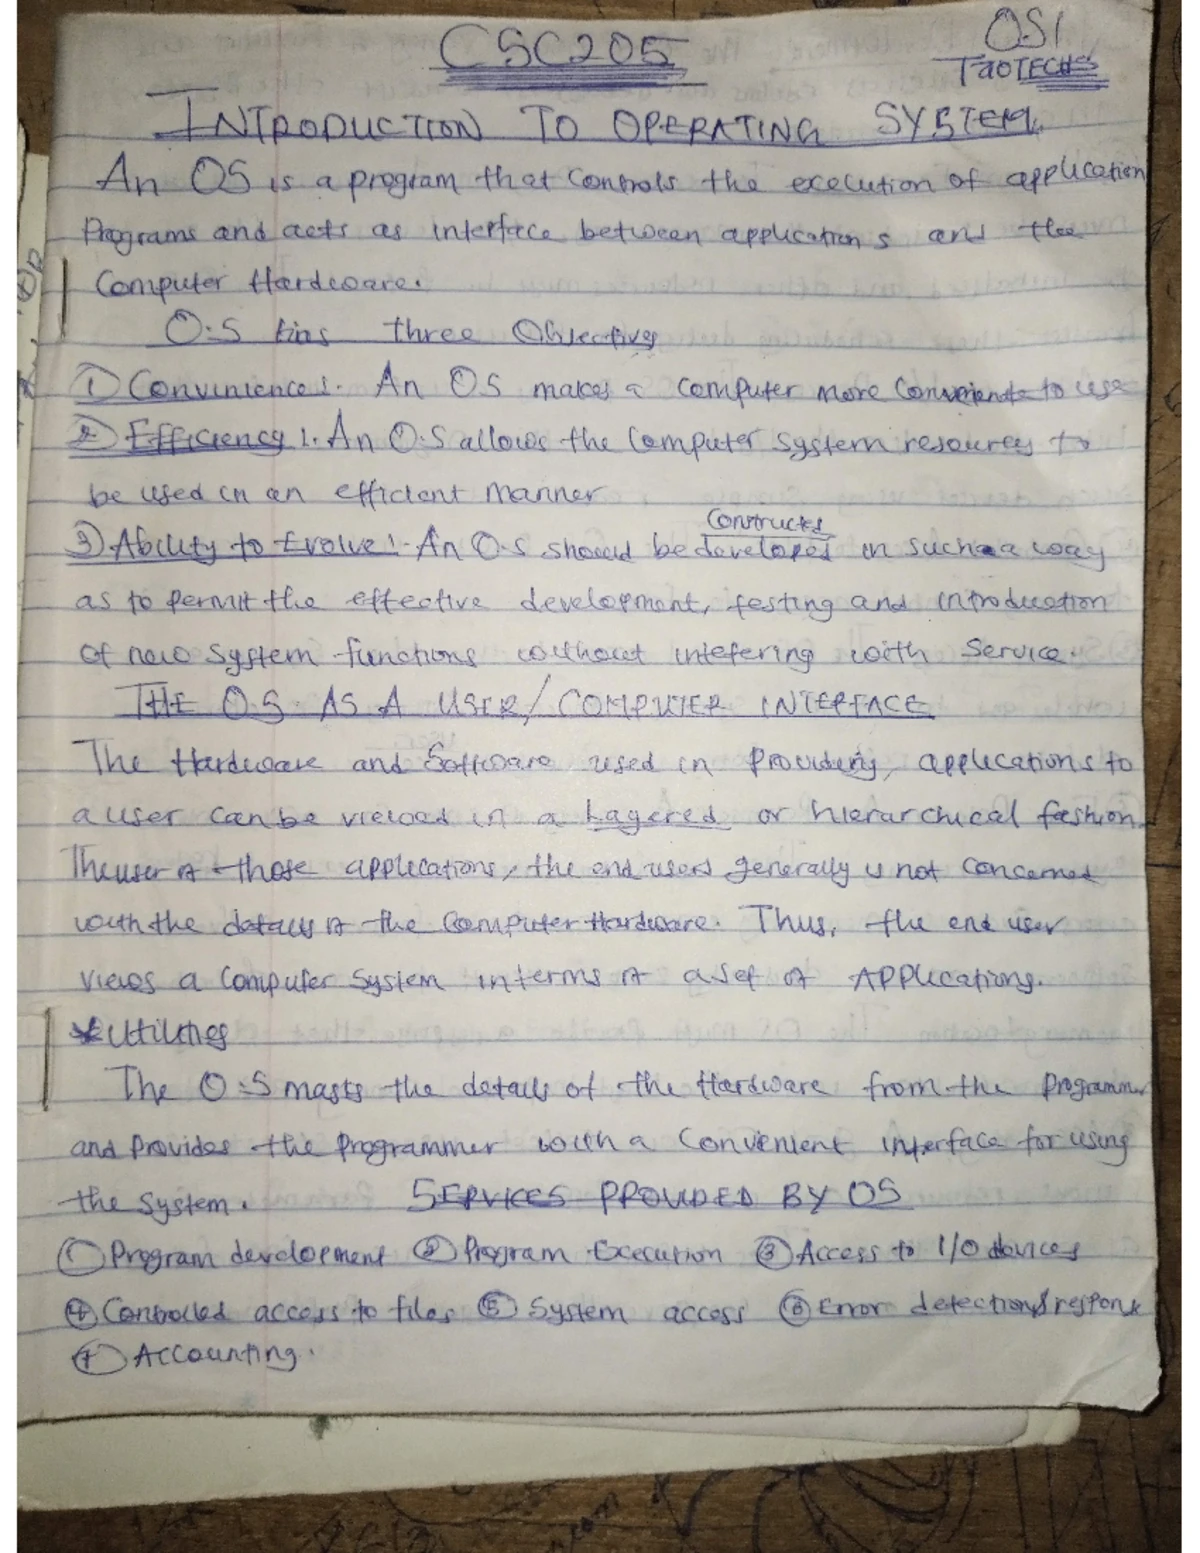 CSC205
OS1
TaoTECHS
INTRODUCTION TO OPERATING SYSTEM.
An OS is a program that controls the execution of application
Programs and acts as interface between applications and the
Computer Hardware.
O.S has three Objectives
① Convinience:- An OS makes a computer more Convenient to use
② Efficiency:- An O.S allows the computer system resources to
be used in an efficient manner
Constructed
③ Ability to Evolve:- An O.S should be developed in such a way
as to permit the effective development, testing and introduction
of new system functions without intefering with service.
THE O.S AS A USER/COMPUTER INTERFACE
The Hardware and Software used in Providing applications to
a user can be viewed in a Layered or hierarchical fashion.
The user of those applications, the end users generally is not concerned
with the details of the Computer Hardware. Thus, the end user
views a Computer System interms of a set of APPlications.
*Utilities
The O.S masks the details of the Hardware from the programmer
and provides the programmer with a convenient interface for using
the system.
SERVICES PROVIDED BY OS
① Program development ② Program Execution ③ Access to I/O devices
④ Controlled access to files ⑤ System access ⑥ Error detection & response
⑦ Accounting.